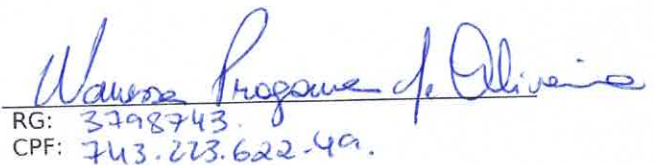 Wanessa Progama de Oliveira
RG: 3798743.
CPF: 743.223.622-49.